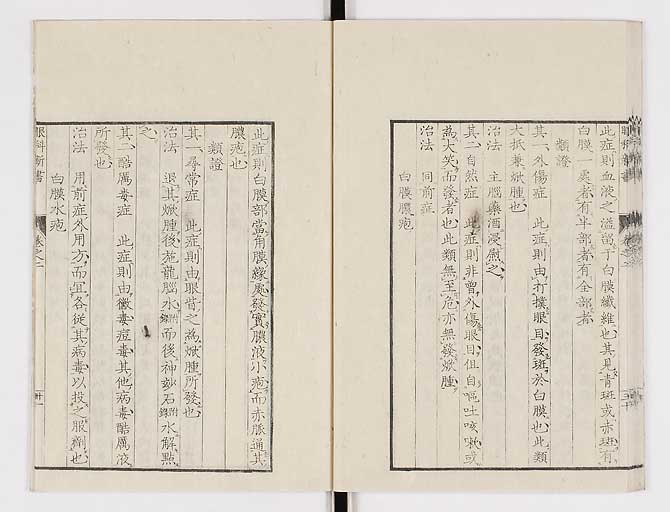 此症則血液之溢留于白膜纖維也其見青斑或赤斑有
白膜一處者有半部者有全部者
類證
其一外傷症 此症則由打撲眼目發斑於白膜也此類
大抵兼焮腫也
治法 主腦藥酒浸慰之
其二自然症 此症則非曾外傷眼目但自嘔吐咳嗽或
為大笑而發者也此類無至危亦無發焮腫
治法 同前症
白膜膿疱
此症則白膜部當角膜緣處發實膿液小疱而赤脈通其
膿疱也
類證
其一尋常症 此症則由眼胞之為焮腫所發也
治法 退其焮腫後施龍腦水附錄而後神効石附錄水解點
之
其二酷厲毒症 此症則由黴毒痘毒其他病毒酷厲液
所發也
治法 用前症外用方而宜各從其病毒以投之服劑也
白膜水疱
眼科新書
卷之二